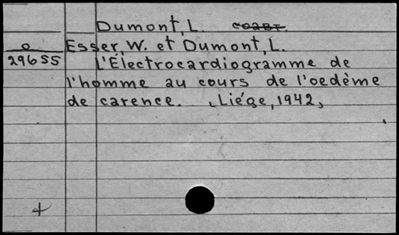 Dumont, L.
o Esser, W. et Dumont, L.
29655 L'Électrocardiogramme de
l'homme au cours de l'oedème
de carence. Liége, 1942,
4